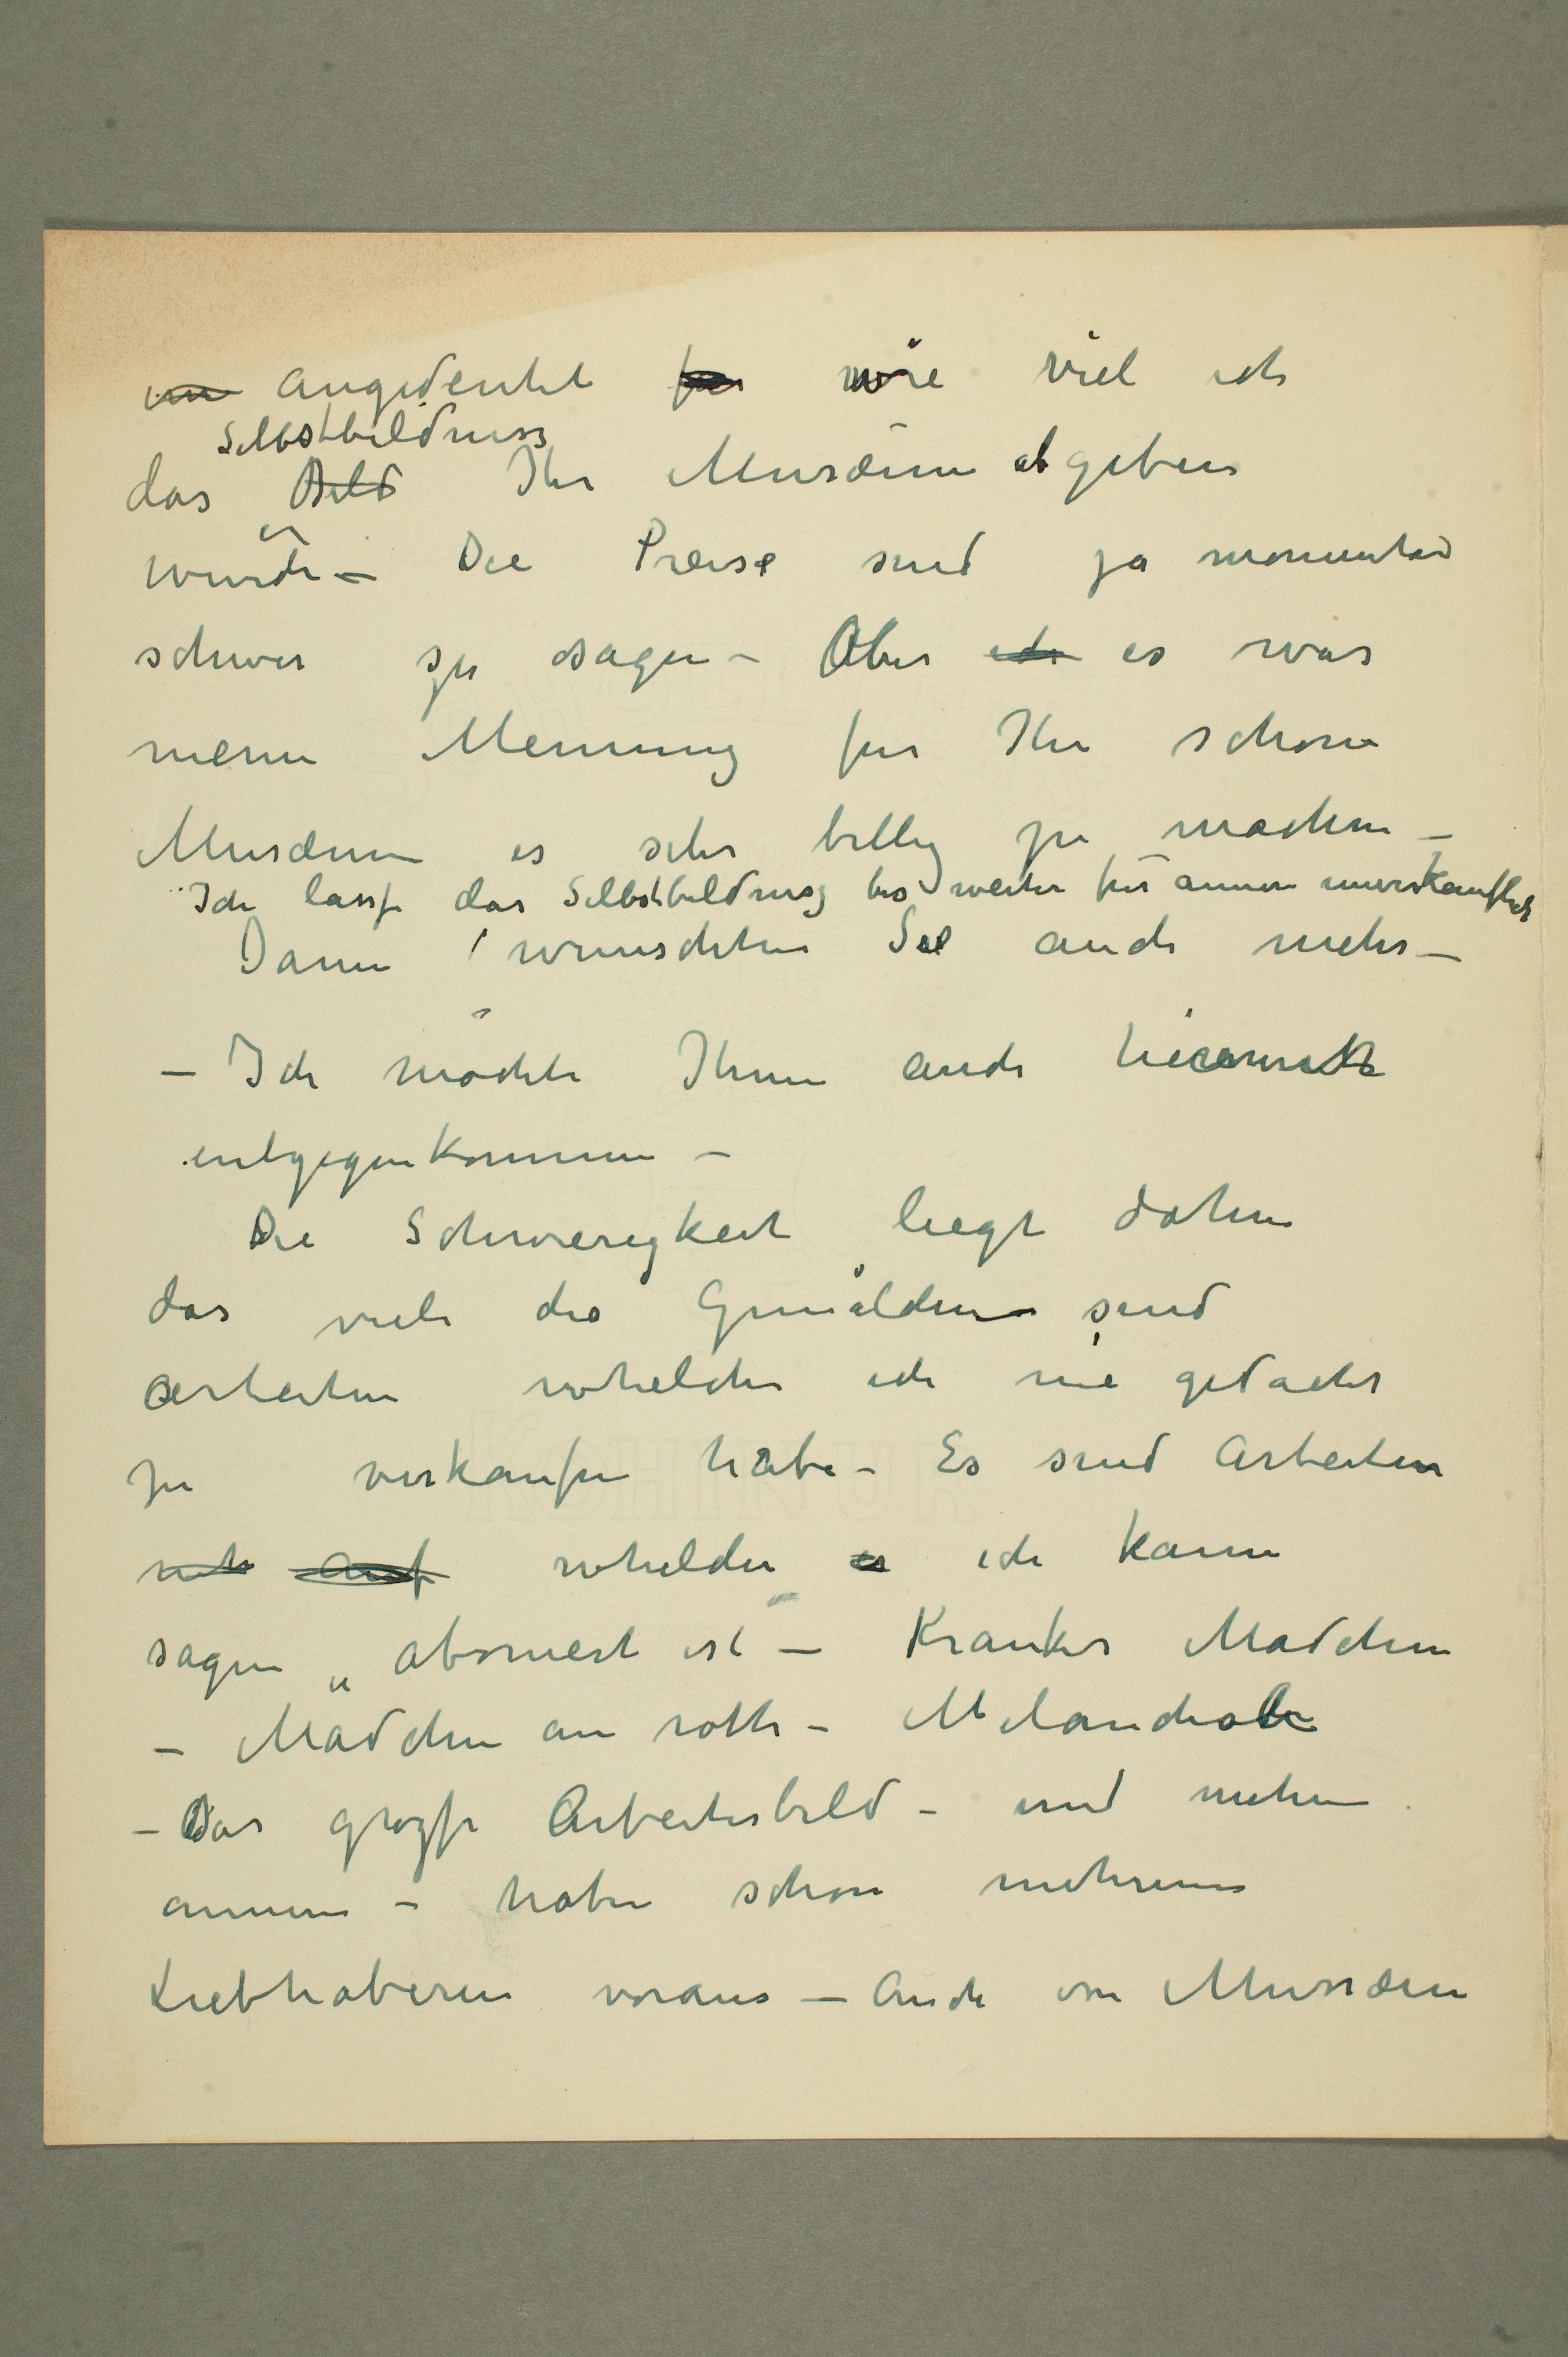 im angedeutet für wie viel ich
Selbstbildniss
das Bild Ihr Musæum abgeben
würde – Die Preise sind ja momentan
schwer zu sagen – Aber ich es war
meine Meinung für Ihr schöne
Musæum es sehr billig zu machen –
Ich lasse das Selbstbildniss bis weiter für annere unverkauflich
Dann wünschten Sie auch mehr –
– Ich möchte Ihnen auch hiermit
entgegenkommen –
Die Schwierigkeit liegt dahin
das viele die Gemälden sind
arbeiten whelche ich nie gedacht
zu verkaufen habe – Es sind Arbeiten
auf whelche es ich kann
sagen „aboniert ist“ – Krankes Mädchen
– Mädchen am rothe – Melancholie
– Das grosse Arbeiterbild – und mehre
annere – habe schon mehrere
Liebhaberen voraus – Auch von Musæen